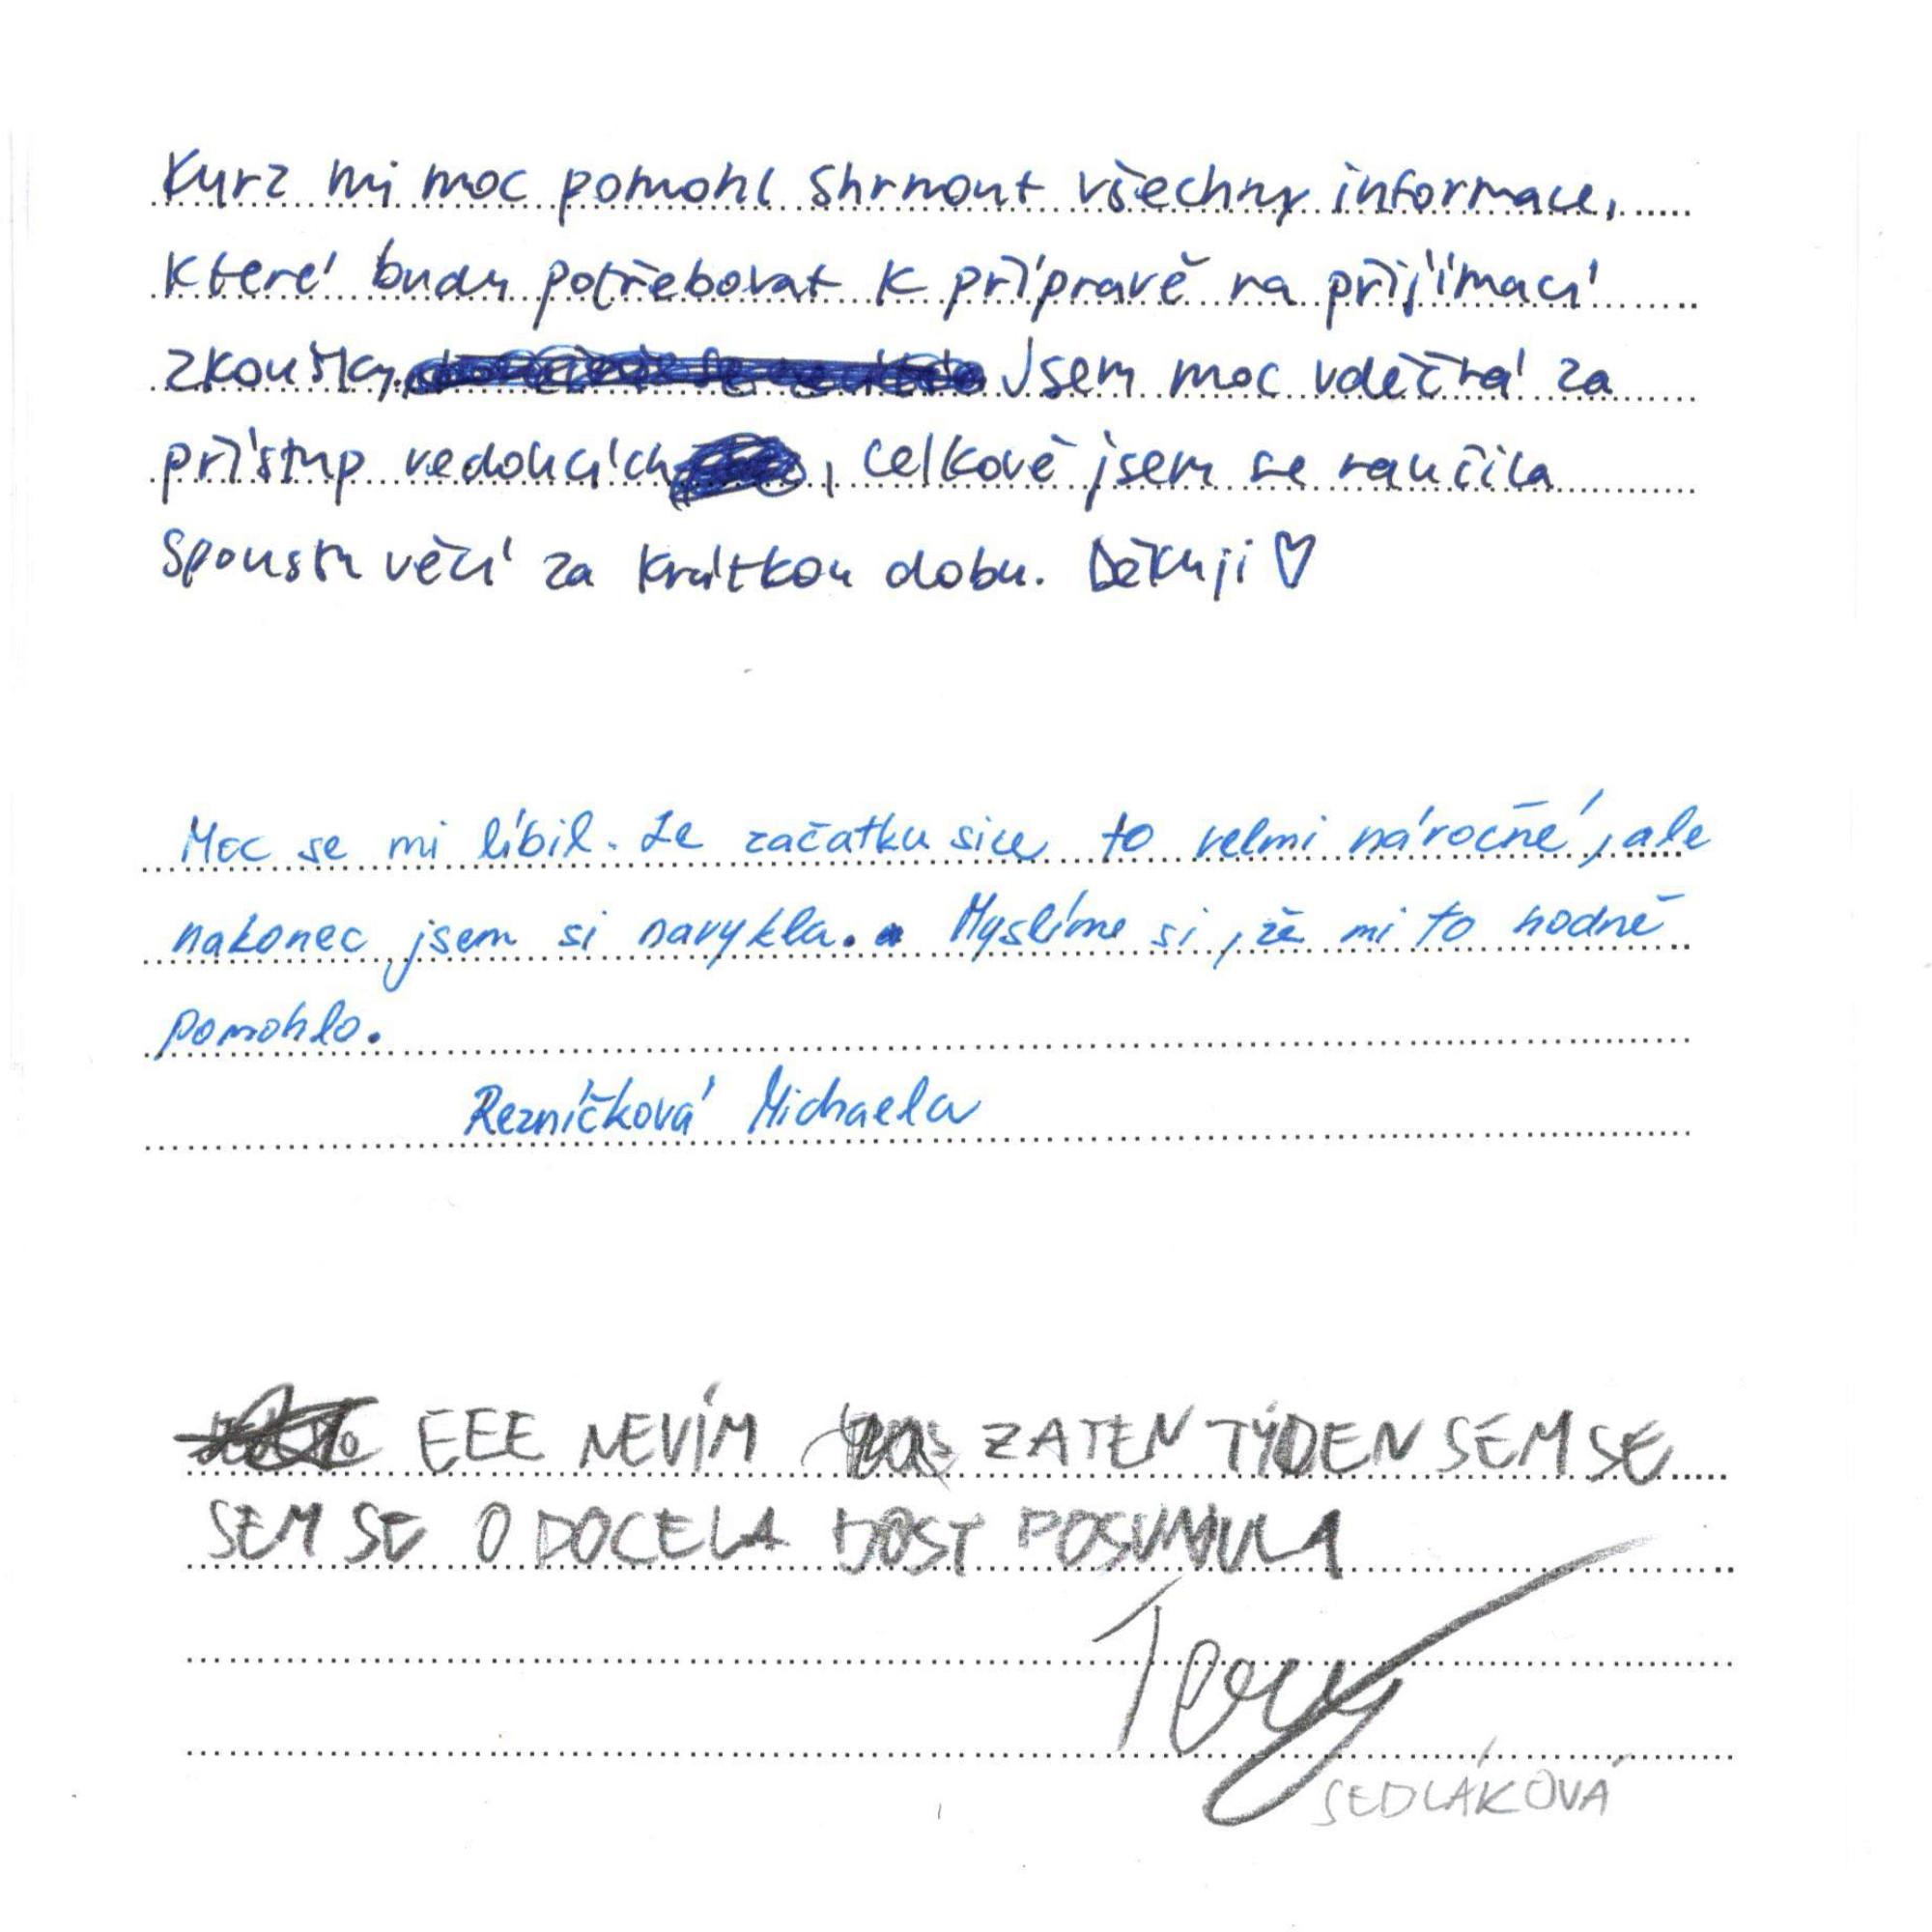 Kurz mi moc pomohl shrnout všechny informace,
které budu potřebovat k přípravě na přijímací
zkoušky. Jsem moc vděčná za
přístup vedoucích, celkově jsem se naučila
spoustu věcí za krátkou dobu. Děkuji ♡
Moc se mi líbil. Ze začátku sice to velmi náročné, ale
nakonec jsem si navykla. Myslíme si, že mi to hodně
pomohlo.
Rezníčková Michaela
EEE NEVÍM ZA TEN TÝDEN SEM SE
SEM SE O DOCELA DOST POSUNULA
Tery
SEDLÁKOVÁ